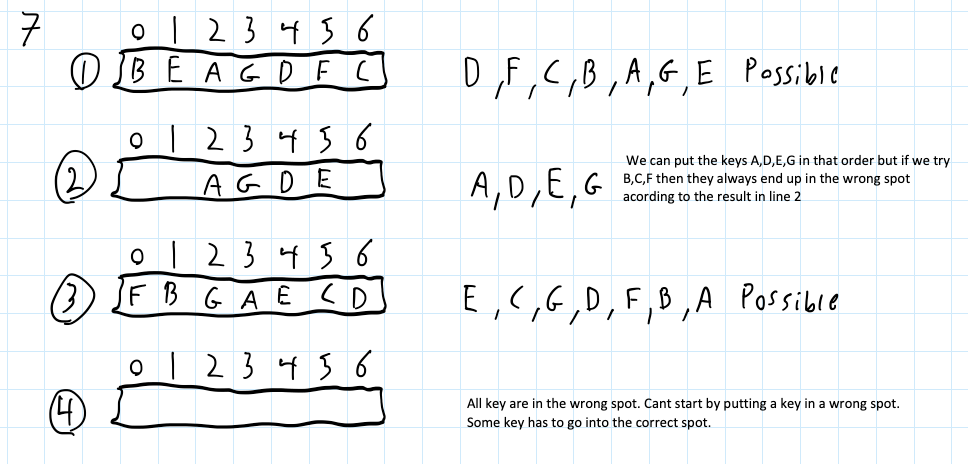 7
0 1 2 3 4 5 6
① B E A G D F C D, F, C, B, A, G, E Possible
0 1 2 3 4 5 6
② A G D E A, D, E, G We can put the keys A,D,E,G in that order but if we try
B,C,F then they always end up in the wrong spot
acording to the result in line 2
0 1 2 3 4 5 6
③ F B G A E C D E, C, G, D, F, B, A Possible
0 1 2 3 4 5 6
④ All key are in the wrong spot. Cant start by putting a key in a wrong spot.
Some key has to go into the correct spot.